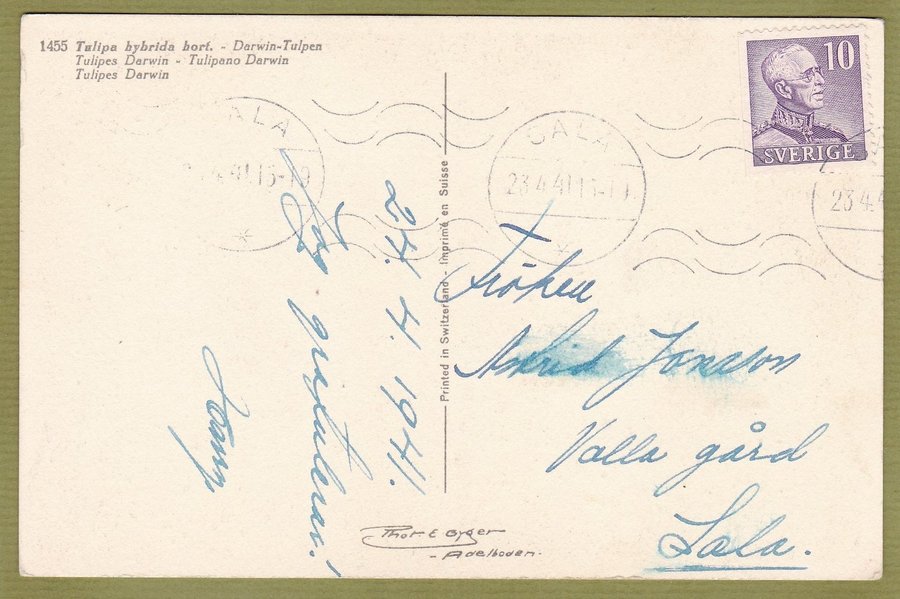 1455 Tulipa hybrida hort. - Darwin-Tulpen
Tulipes Darwin - Tulipano Darwin
Tulipes Darwin
10
SVERIGE
SALA
23.4.41.13-19
Printed in Switzerland - Imprimé en Suisse
24. 4. 1941.
Jag gratulerar!
Fröken
Astrid Jonsson
Valla gård
Sala.
Phot. E. Gyger
- Adelboden.